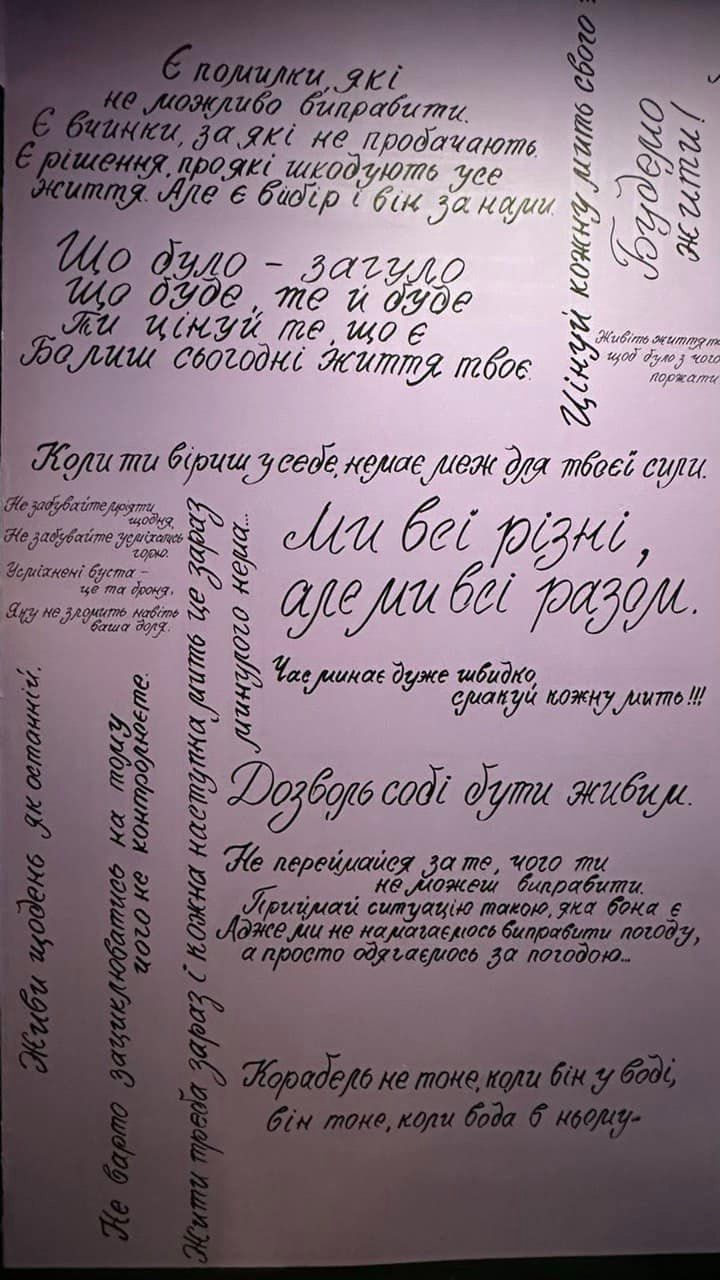 Є помилки, які
не можливо виправити.
Є вчинки, за які не пробачають.
Є рішення, про які шкодують усе
життя. Але є вибір і він за нами.
Що було - загуло
що буде, те й буде
Ти цінуй те, що є
Бо лиш сьогодні життя твоє.
Цінуй кожну мить свого
Будемо
жити!
Живіть життя
щоб було з чого
поржати
Коли ти віриш у себе, немає меж для твоєї сили.
Не забувайте мріяти
щодня,
Не забувайте усміхатись
горю.
Усміхнені вуста -
це та броня,
Яку не зломить навіть
ваша доля.
Ми всі різні,
але ми всі разом.
Час минає дуже швидко,
смакуй кожну мить!!!
Дозволь собі бути живим.
Не переймайся за те, чого ти
не можеш виправити.
Приймай ситуацію такою, яка вона є
Адже ми не намагаємось виправити погоду,
а просто одягаємось за погодою...
Корабель не тоне, коли він у воді,
він тоне, коли вода в ньому.
Живи щодень як останній.
Не варто зациклюватись на тому
чого не контролюєте.
Жити треба зараз і кожна наступна мить це зараз
минулого нема...